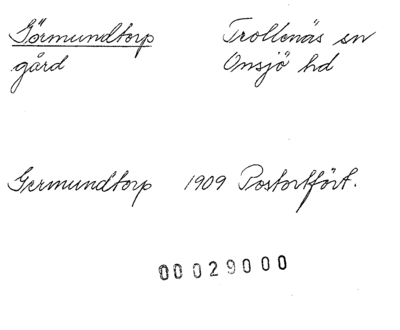 Görmundtorp Trollenäs sn
gård Onsjö hd
Germundtorp 1909 Postortfört.
00029000